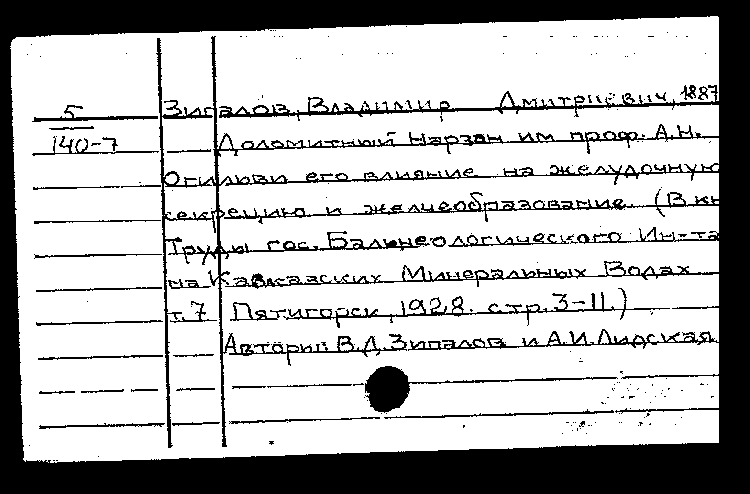 5
140-7
Зипалов, Владимир Дмитриевич, 1887
Доломитный Нарзан им проф. А.Н.
Огильви его влияние на желудочную
секрецию и желчеобразование. (В кн
Труды гос. Бальнеологического Ин-та
на Кавказских Минеральных Водах
т. 7 Пятигорск, 1928. стр. 3-11.)
Авторы: В.Д. Зипалов и А.И. Лидская.